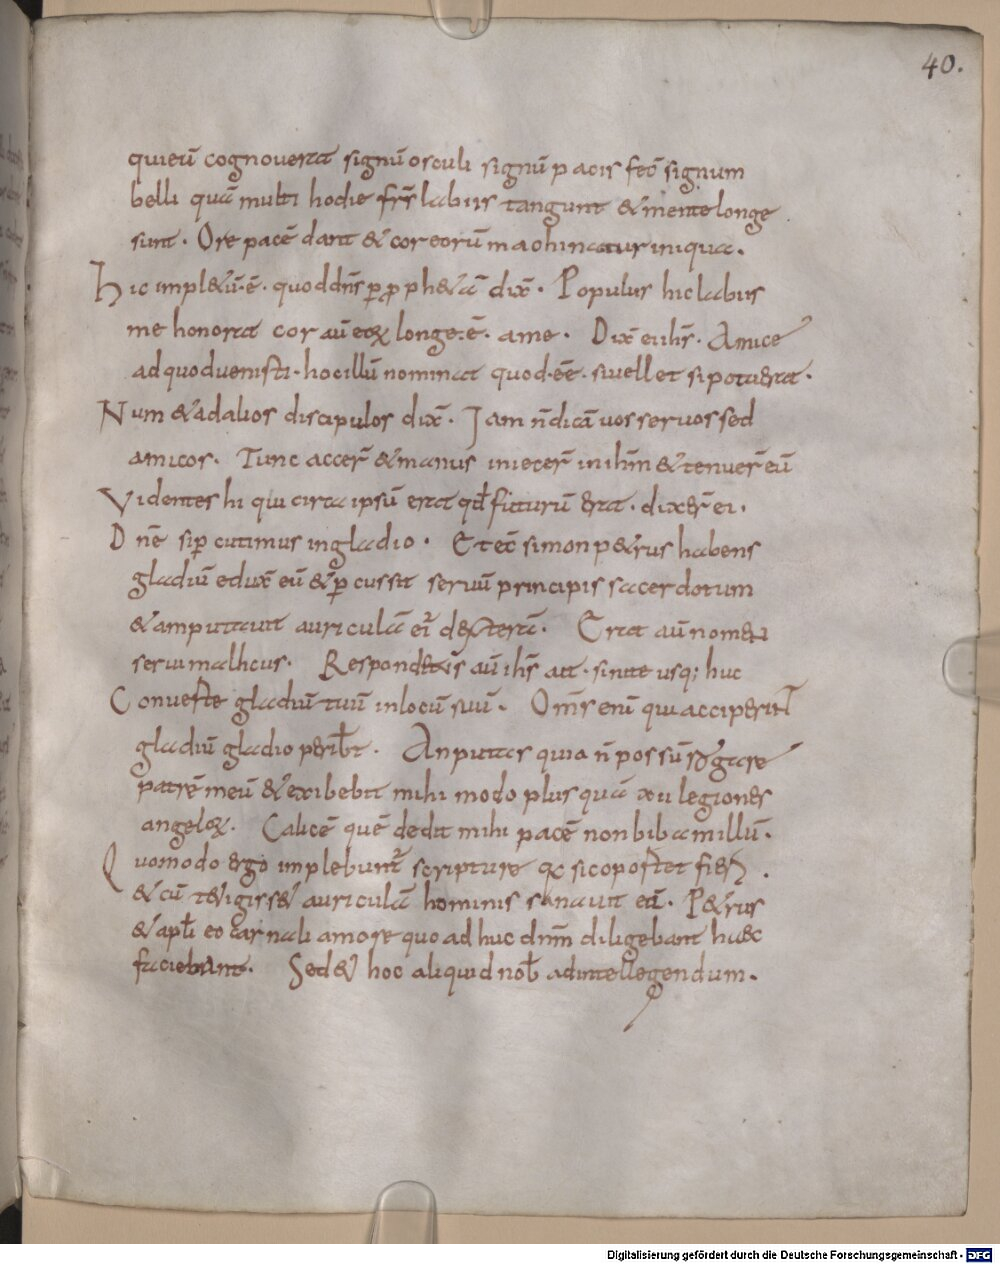 40.
quieū cognouerat signū osculi signū pacis fec̄ signum
belli quā multi hodie frs̄ labiis tangunt & mente longe
sunt. Ore pacē dant & cor eorū machinatur iniqua.
Hic impl&ū.ē. quod dn̄s ꝑ ꝓph&ā dix̄. Populus hic labiis
me honorat cor aū eoꝝ longe.ē. a me. Dix̄ ei ih̄s. Amice
ad quod uenisti. hoc illū nominat quod.eē. si uell et si potuerat.
Num & ad alios discipulos dix̄. Iam n̄ dicā uos seruos sed
amicos. Tunc accer̄ & manus iniecer̄ in ih̄m & tenuer̄ eū
Videntes hi qui circa ipsū erat qd̄ futurū erat. dixer̄ ei.
Dn̄e si ꝑcutimus in gladio. Et ec̄ simon p&rus habens
gladiū edux̄ eū & ꝑcussit seruū principis sacerdotum
& amputauit auriculā ei᷒ dexterā. Erat aū nomen
serui malhcus. Respondens aū ih̄s ait. sinite usq; huc
Conuerte gladiū tuū in locū suū. Om̄s enī qui acciperint
gladiū gladio perib̄t. An putas quia n̄ possū rogare
patrē meū & exibebit mihi modo plus quā xii legiones
angeloꝝ. Calicē quē dedit mihi pacē non bibam illū.
Quomodo ergo implebunt᷒ scripture qa sic oportet fieri.
& cū t&igiss& auriculā hominis sanauit eū. P&rus
& apl̄i eo carnali amore quo adhuc dnm̄ diligebant haec
faciebant. Sed & hoc aliquid nob̄ ad intellegendum.
Digitalisierung gefördert durch die Deutsche Forschungsgemeinschaft - DFG